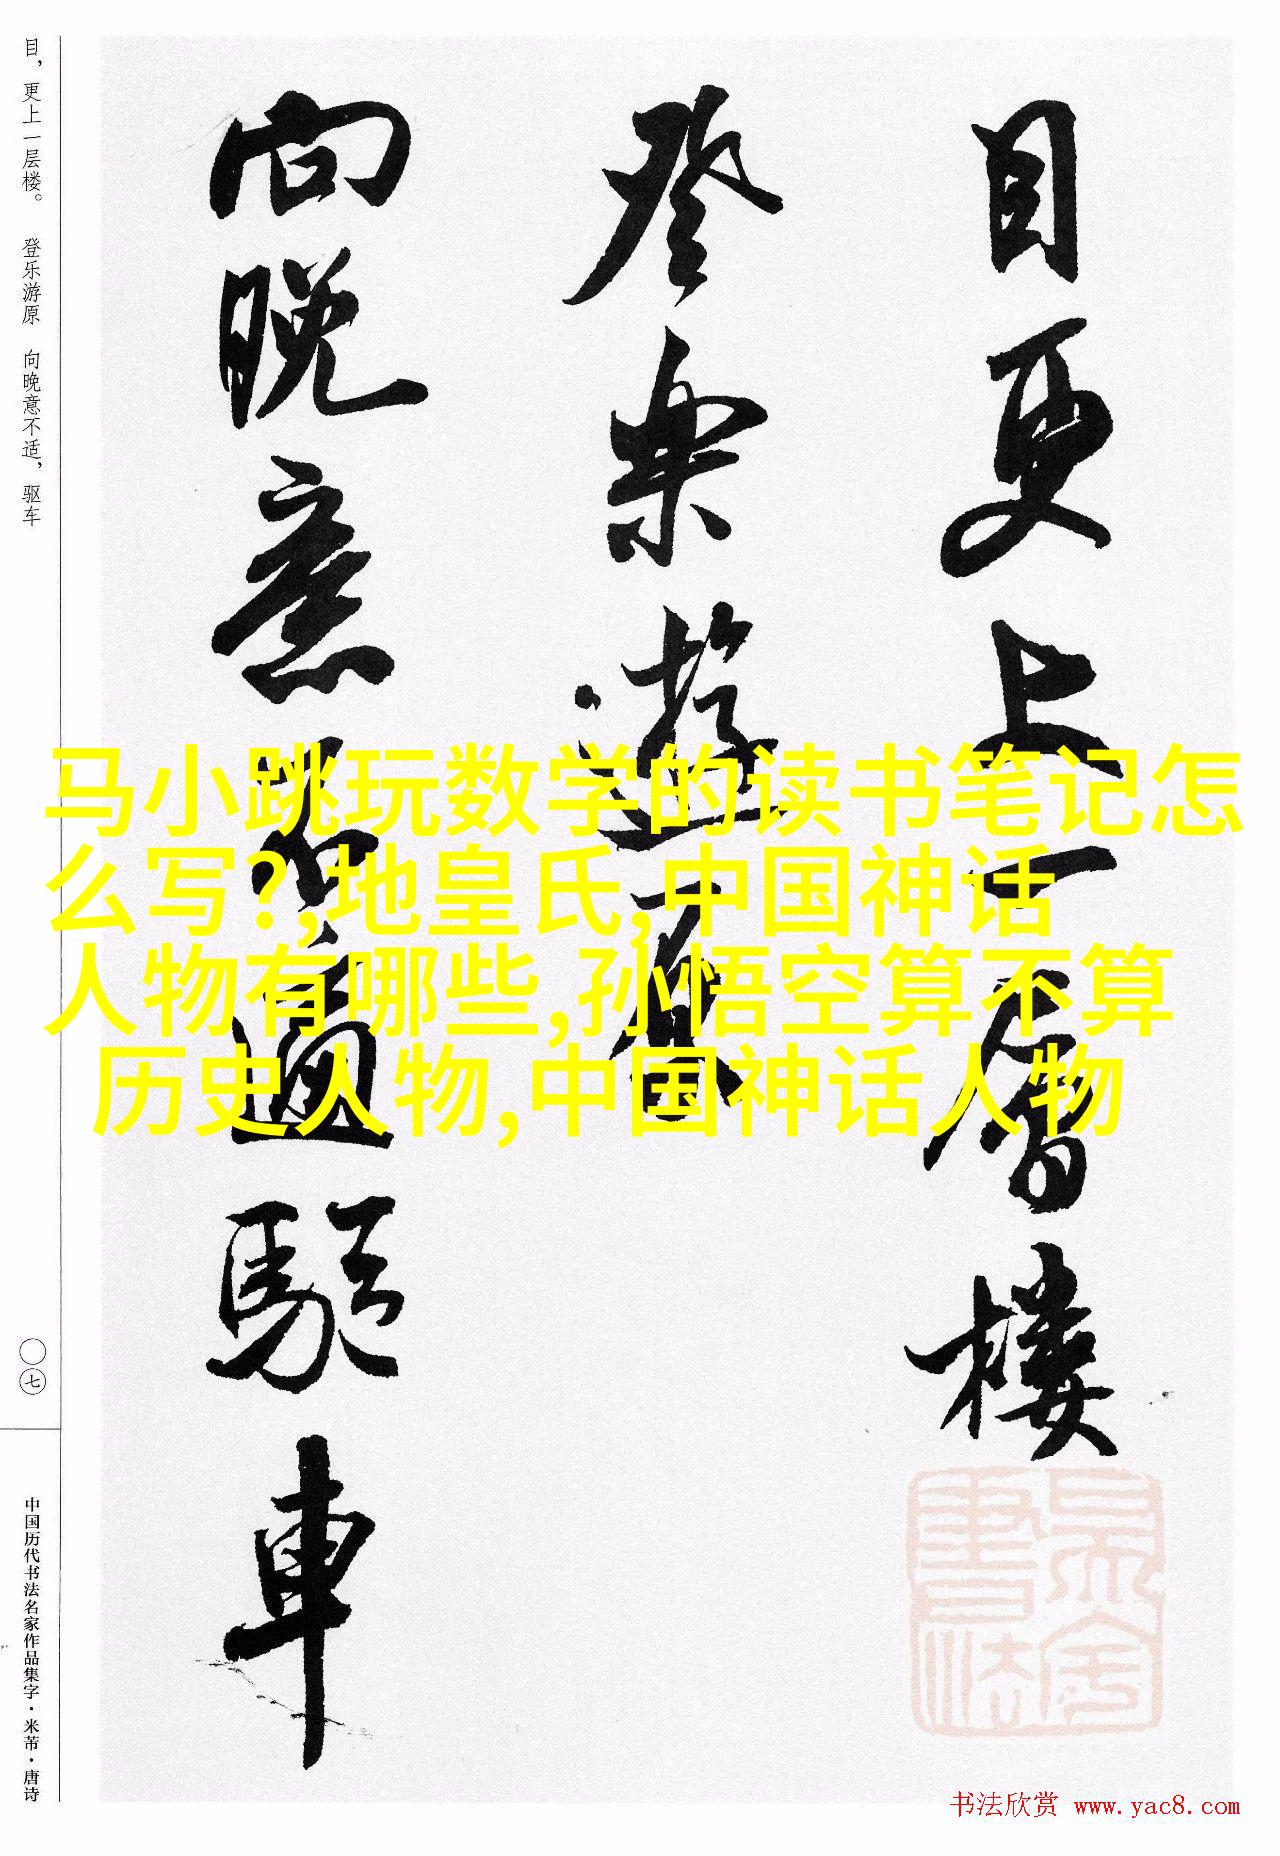 目更上一層樓
登樂遊原
向晚意不適驅車
目，更上一层楼。 登乐游原 向晚意不适，驱车
〇七
中国历代书法名家作品集字·米芾·唐诗
马小跳玩数学的读书笔记怎
么写?,地皇氏,中国神话
人物有哪些,孙悟空算不算
历史人物,中国神话人物
书法欣赏 www.yac8.com